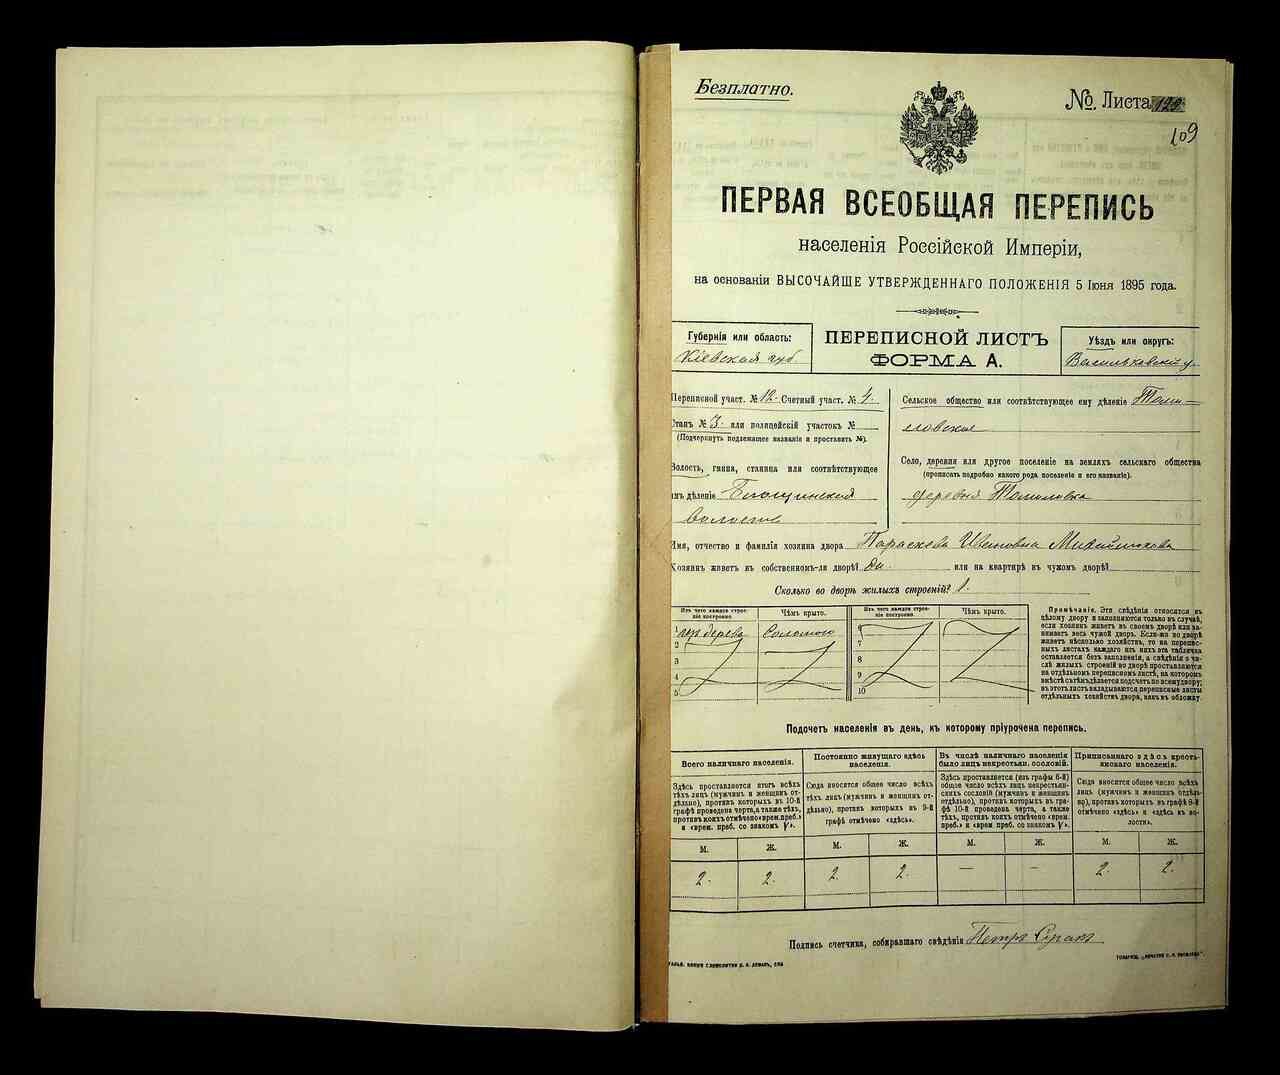 Безплатно.
№. Листа 122
109
ПЕРВАЯ ВСЕОБЩАЯ ПЕРЕПИСЬ
населенія Россійской Имперіи,
на основаніи ВЫСОЧАЙШЕ УТВЕРЖДЕННАГО ПОЛОЖЕНІЯ 5 Іюня 1895 года.
Губернія или область:
Кіевская губ.
ПЕРЕПИСНОЙ ЛИСТЪ
ФОРМА А.
Уѣздъ или округъ:
Васильковскій у.
Переписной участ. № 12. Счетный участ. № 4.
Станъ № 3. или полицейскій участокъ №
(Подчеркнуть подлежащее названіе и проставить №).
Волость, гмина, станица или соотвѣтствующее
имъ дѣленіе
волость
Сельское общество или соотвѣтствующее ему дѣленіе Томи-
ловское
Село, деревня или другое поселеніе на земляхъ сельскаго общества
(прописать подробно какого рода поселеніе и его названіе).
деревня Томиловка
Имя, отчество и фамилія хозяина двора Параскева Ивановна
Хозяинъ живетъ въ собственномъ-ли дворѣ? да. или на квартирѣ въ чужомъ дворѣ?
Сколько во дворѣ жилыхъ строеній? 1.
Изъ чего каждое строеніе построено. Чѣмъ крыто. Изъ чего каждое строеніе построено. Чѣмъ крыто.
1 изъ дерева Соломою 6
2 7
3 8
4 9
5 10
Примѣчаніе. Эти свѣдѣнія относятся къ
цѣлому двору и заполняются только въ случаѣ,
если хозяинъ живетъ въ своемъ дворѣ или за-
нимаетъ весь чужой дворъ. Если-же во дворѣ
живетъ нѣсколько хозяйствъ, то на перепис-
ныхъ листахъ каждаго изъ нихъ эта табличка
оставляется безъ заполненія, а свѣдѣнія о чи-
слѣ жилыхъ строеній во дворѣ проставляются
на отдѣльномъ переписномъ листѣ, на которомъ
вмѣстѣ съ тѣмъ дѣлается подсчетъ по всему двору;
въ этотъ листъ вкладываются переписные листы
отдѣльныхъ хозяйствъ двора, какъ въ обложку.
Подсчетъ населенія въ день, къ которому пріурочена перепись.
Всего наличнаго населенія.
Здѣсь проставляется итогъ всѣхъ
тѣхъ лицъ (мужчинъ и женщинъ от-
дѣльно), противъ которыхъ въ 10-й
графѣ проведена черта, а также тѣхъ,
противъ коихъ отмѣчено «врем. преб.»
и «врем. преб. со знакомъ V».
Постоянно живущаго здѣсь
населенія.
Сюда вносится общее число всѣхъ
тѣхъ лицъ (мужчинъ и женщинъ отдѣ-
льно), противъ которыхъ въ 9-й
графѣ отмѣчено «здѣсь».
Въ числѣ наличнаго населенія
было лицъ некрестьян. сословій.
Здѣсь проставляется (изъ графы 6-й)
общее число всѣхъ лицъ некрестьян-
скихъ сословій (мужчинъ и женщинъ
отдѣльно), противъ которыхъ въ гра-
фѣ 10-й проведена черта, а также
тѣхъ, противъ коихъ отмѣчено «врем.
преб.» и «врем преб. со знакомъ V».
Приписаннаго здѣсь кресть-
янскаго населенія.
Сюда вносится общее число всѣхъ
лицъ (мужчинъ и женщинъ отдѣль-
но), противъ которыхъ въ графѣ 8-й
отмѣчено «здѣсь» и «здѣсь въ во-
лости».
М. Ж. М. Ж. М. Ж. М. Ж.
2. 2. 2. 2. — — 2. 2.
Подпись счетчика, собиравшаго свѣдѣнія Петръ